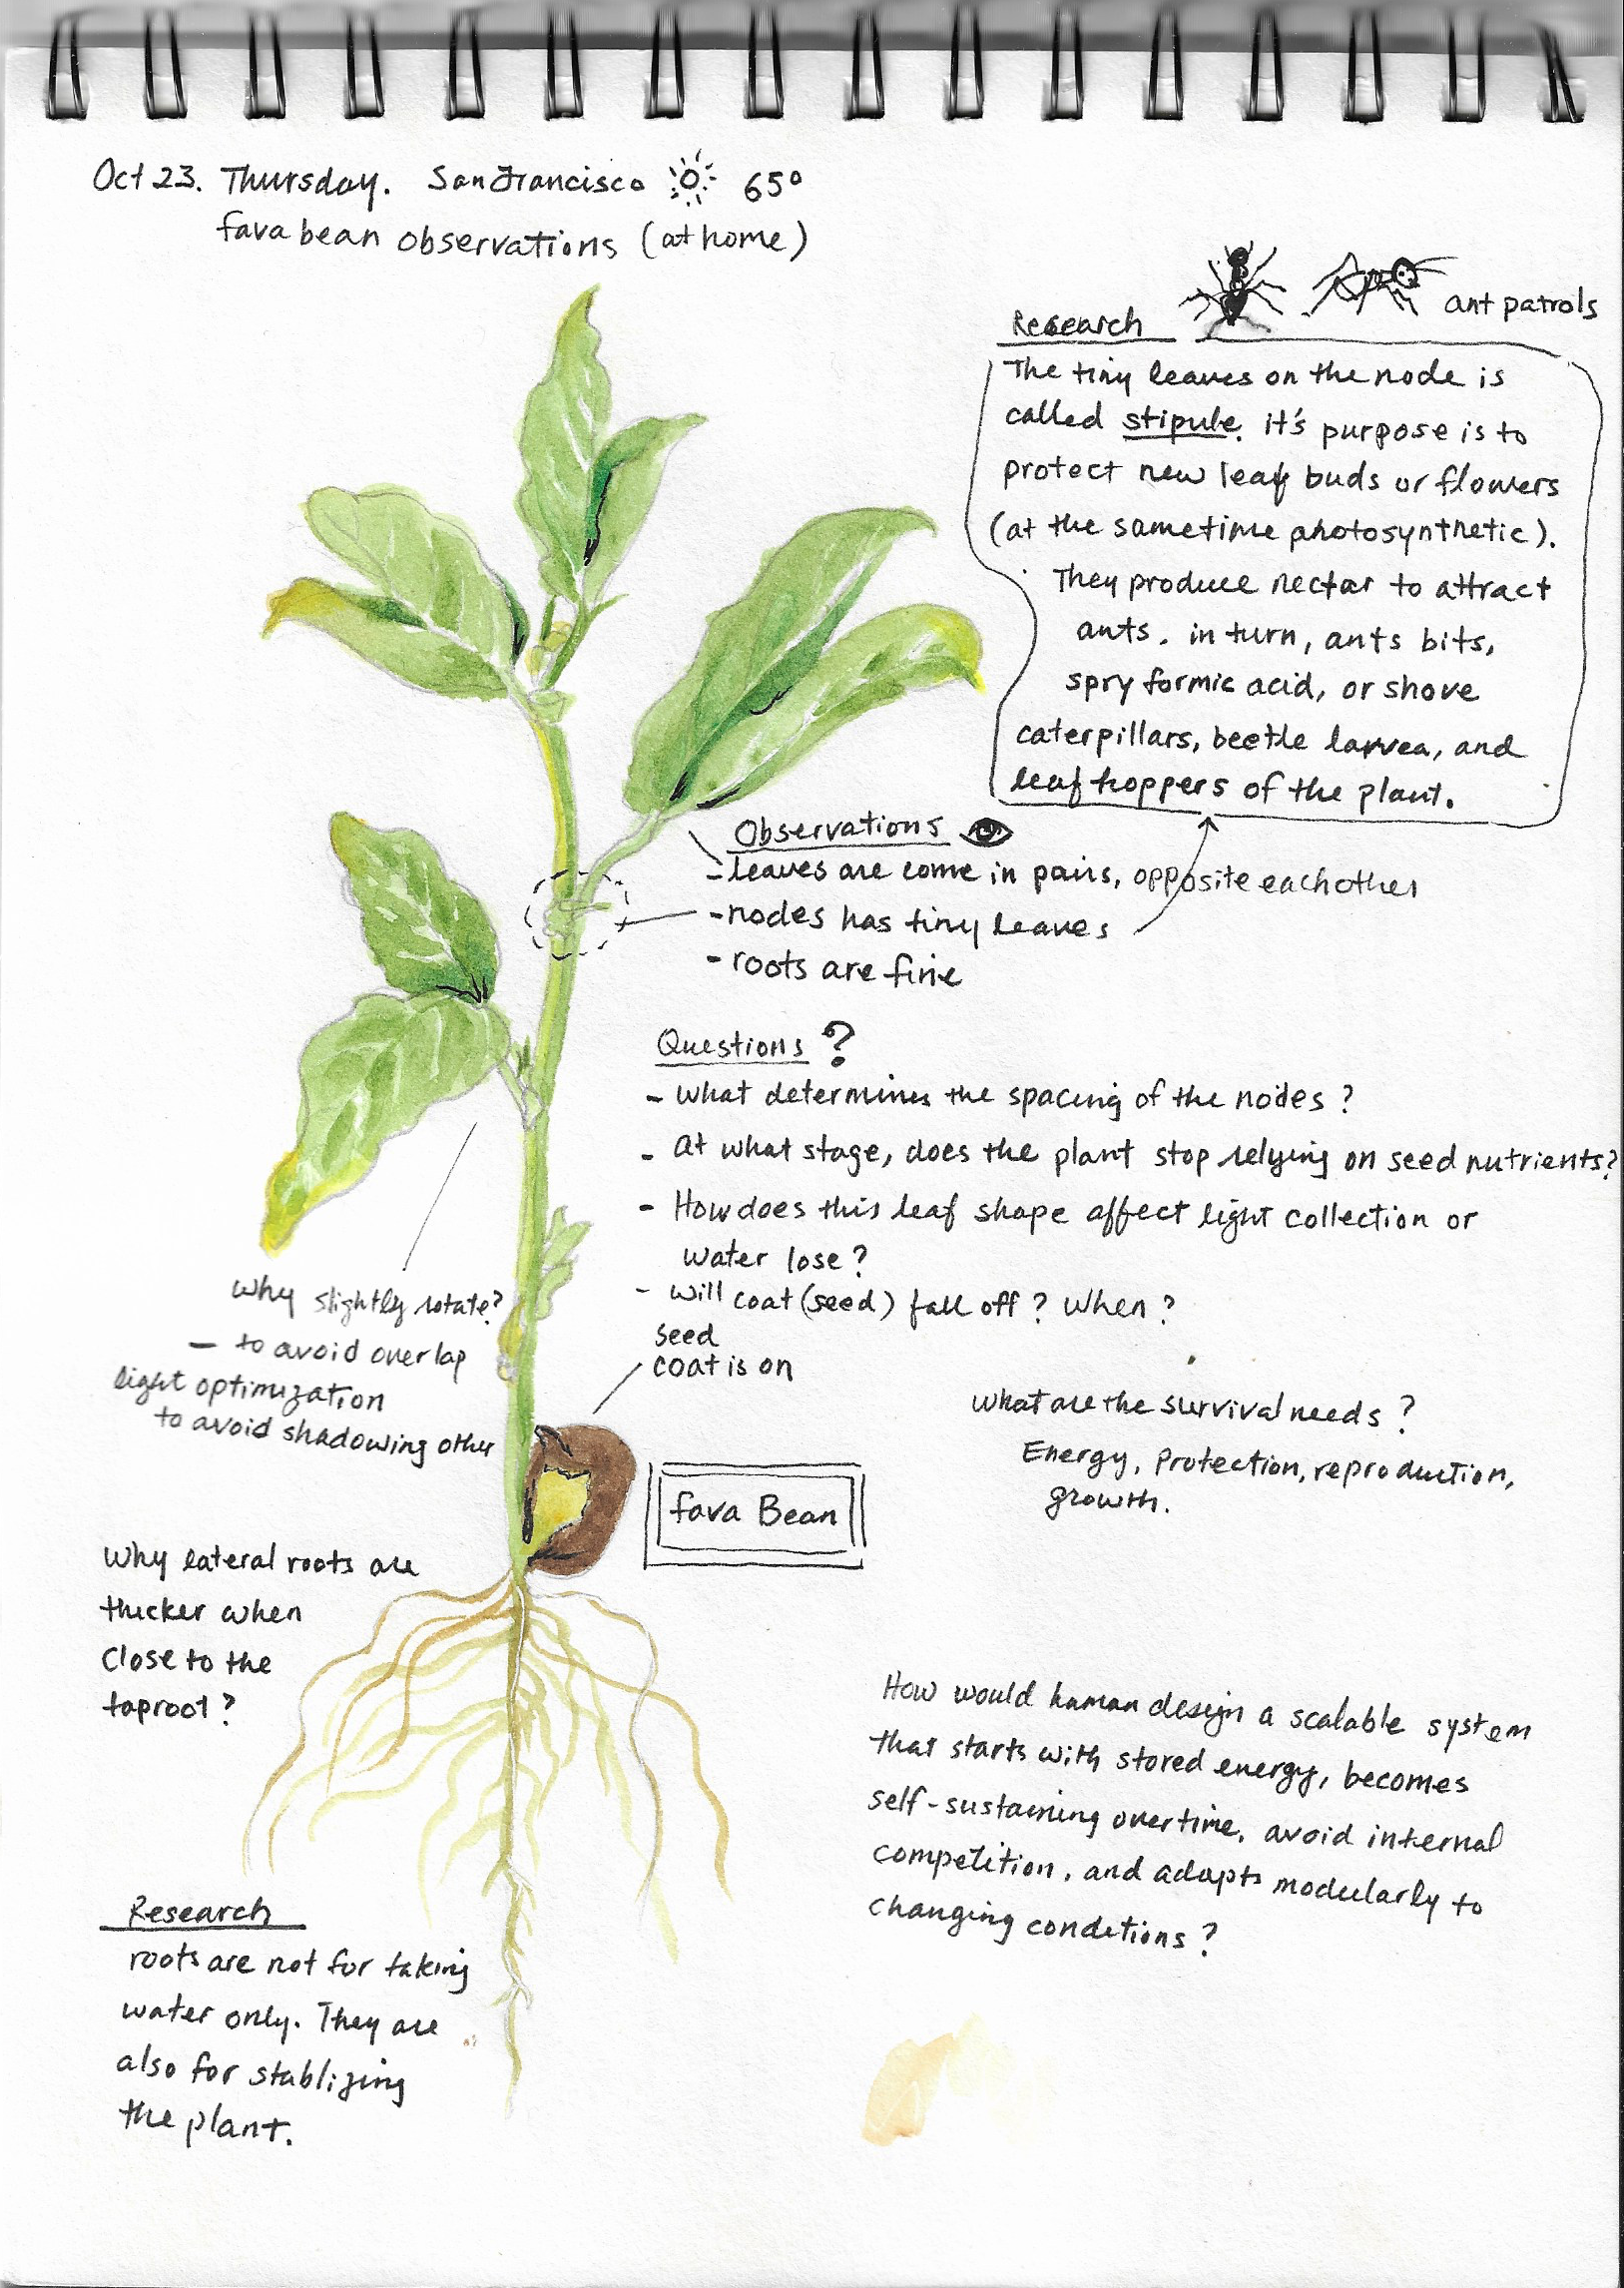 Oct 23. Thursday. San Francisco 65°
fava bean observations (at home)
ant patrols
Research
The tiny leaves on the node is
called stipule. it's purpose is to
protect new leaf buds or flowers
(at the sametime photosynthetic).
They produce nectar to attract
ants. in turn, ants bits,
spry formic acid, or shove
caterpillars, beetle larvea, and
leaf hoppers of the plant.
Observations
- leaves are come in pairs, opposite eachother
- nodes has tiny leaves
- roots are fine
Questions ?
- What determines the spacing of the nodes ?
- At what stage, does the plant stop relying on seed nutrients?
- How does this leaf shape affect light collection or
water lose ?
- will coat (seed) fall off ? When ?
seed
coat is on
Why slightly rotate?
- to avoid overlap
light optimization
to avoid shadowing other
What are the survival needs ?
Energy, Protection, reproduction,
growth.
fava Bean
Why lateral roots are
thicker when
close to the
taproot ?
How would human design a scalable system
that starts with stored energy, becomes
self-sustaining overtime, avoid internal
competition, and adapts modularly to
changing conditions ?
Research
roots are not for taking
water only. They are
also for stablizing
the plant.